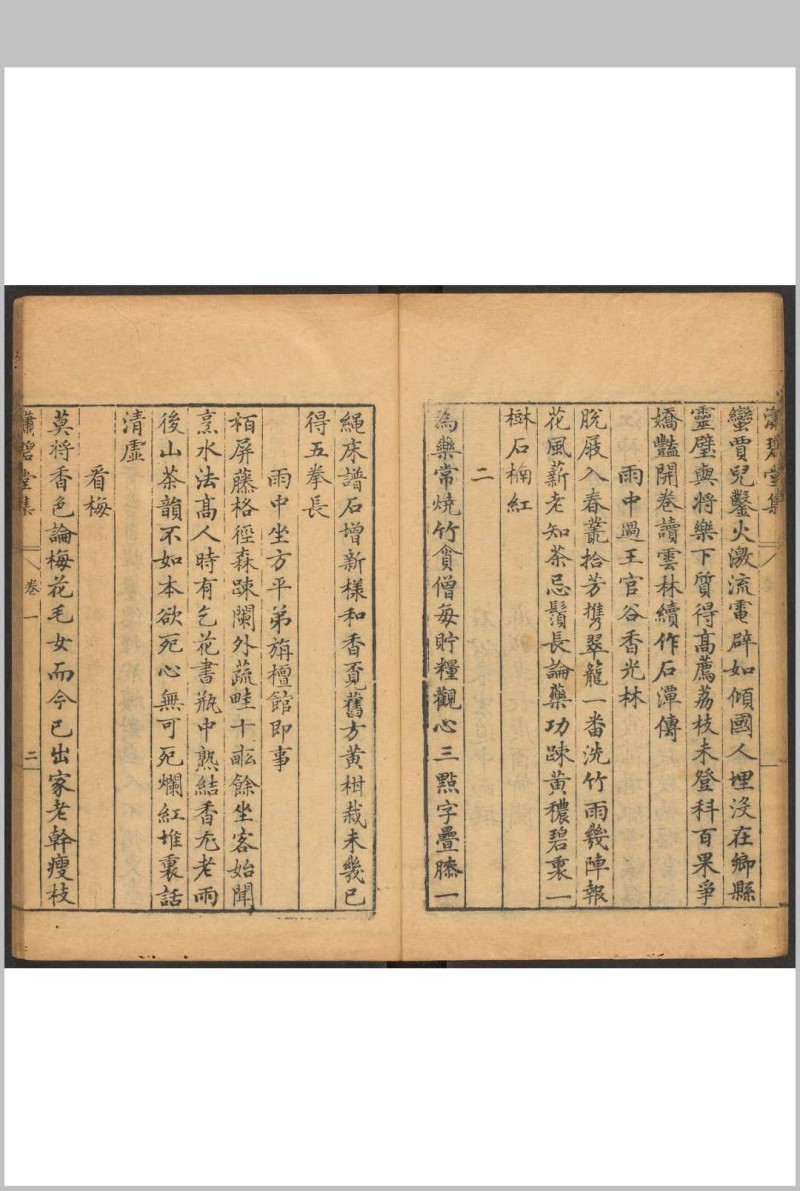 瀟碧堂集
蠻賈兒鑿火激流電辟如傾國人埋沒在鄉縣
靈璧輿將樂下質得高薦荔枝未登科百果爭
嬌豔開卷讀雲林續作石潭傳
雨中過王官谷香光林
脫屐入春叢拾芳携翠籠一番洗竹雨幾陣報
花風薪老知茶忌鬚長論藥功踈黃穠碧裏一
樹石楠紅
二
為藥常燒竹貪僧每貯糧觀心三點字疊膝一
繩床譜石增新様和香覔舊方黃柑栽未幾已
得五拳長
雨中坐方平弟旃檀館即事
栢屏藤格徑森踈闌外蔬畦十畝餘坐客始聞
烹水法高人時有乞花書瓶中熟結香尤老雨
後山茶韻不如本欲死心無可死爛紅堆裏話
清虛
看梅
莫將香色論梅花毛女而今已出家老幹瘦枝
瀟碧堂集
卷一
二